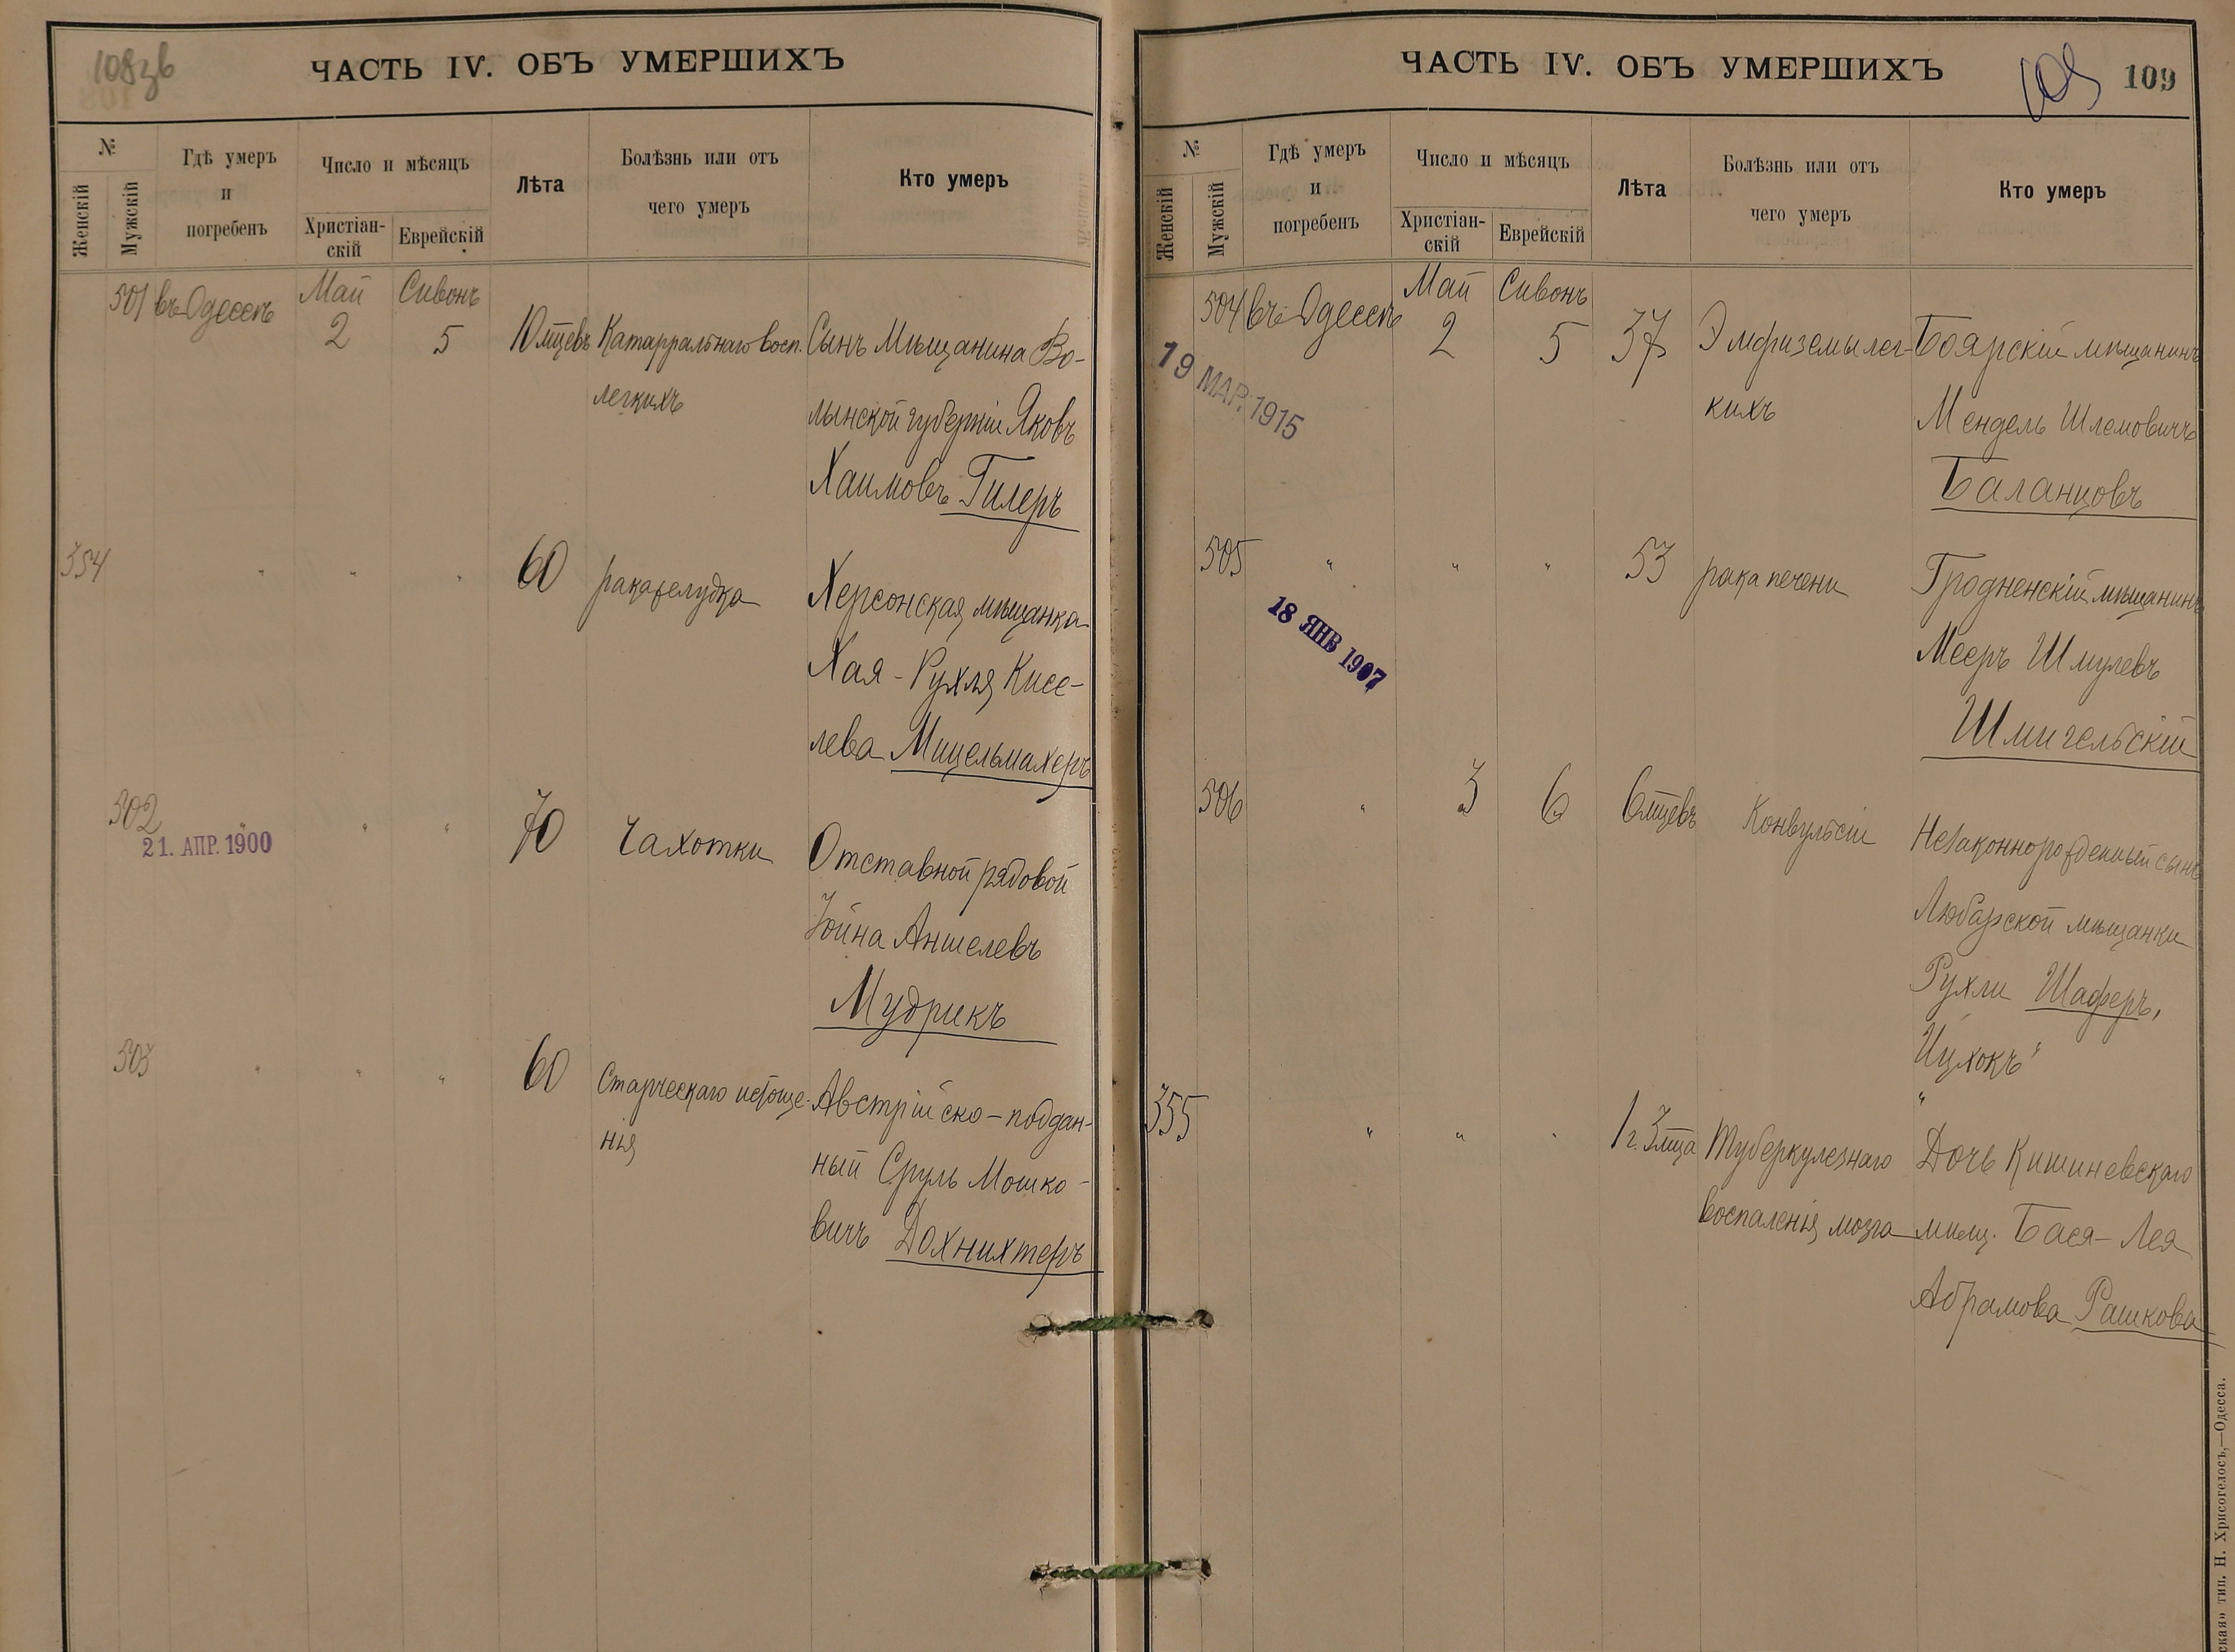 108зв
ЧАСТЬ IV. ОБЪ УМЕРШИХЪ
№
Женскій
Мужскій
Гдѣ умеръ
и
погребенъ
Число и мѣсяцъ
Христіан-
скій
Еврейскій
Лѣта
Болѣзнь или отъ
чего умеръ
Кто умеръ
501 въ Одессѣ Май 2 Сивонъ 5 10 мцевъ Катарральнаго восп. Сынъ Мѣщанина Во-
легкихъ лынской губерніи Яковъ
Хаимовъ Гилеръ
354 " " " 60 рака желудка Херсонская мѣщанка
Хая-Рухля Кисе-
лева Мицельмахеръ
502 " " " 70 Чахотки Отставной рядовой
21. АПР. 1900
Іойна Аншелевъ
Мудрикъ
503 " " " 60 Старческаго истоще- Австрійско-поддан-
нія ный Сруль Мошко-
вичъ Дохнихтеръ
ЧАСТЬ IV. ОБЪ УМЕРШИХЪ
109 109
№
Женскій
Мужскій
Гдѣ умеръ
и
погребенъ
Число и мѣсяцъ
Христіан-
скій
Еврейскій
Лѣта
Болѣзнь или отъ
чего умеръ
Кто умеръ
504 въ Одессѣ Май 2 Сивонъ 5 37 Эмфиземы лег- Боярскій мѣщанинъ
19 МАР. 1915
кихъ Мендель Шлемовичъ
Баланцовъ
505 " " " 53 рака печени Гродненскій мѣщанинъ
18 ЯНВ 1907
Мееръ Шмулевъ
Шмигельскій
506 " 3 6 6 мцевъ Конвульсіи Незаконнорожденный сынъ
Любарской мѣщанки
Рухли Шаферъ,
"Ицхокъ"
355 " " " 1 г. 3 мца Туберкулезнаго Дочь Кишиневскаго
воспаленія мозга мѣщ. Бася-Лея
Абрамова Рашкова
тип. Н. Хрисогелосъ,—Одесса.